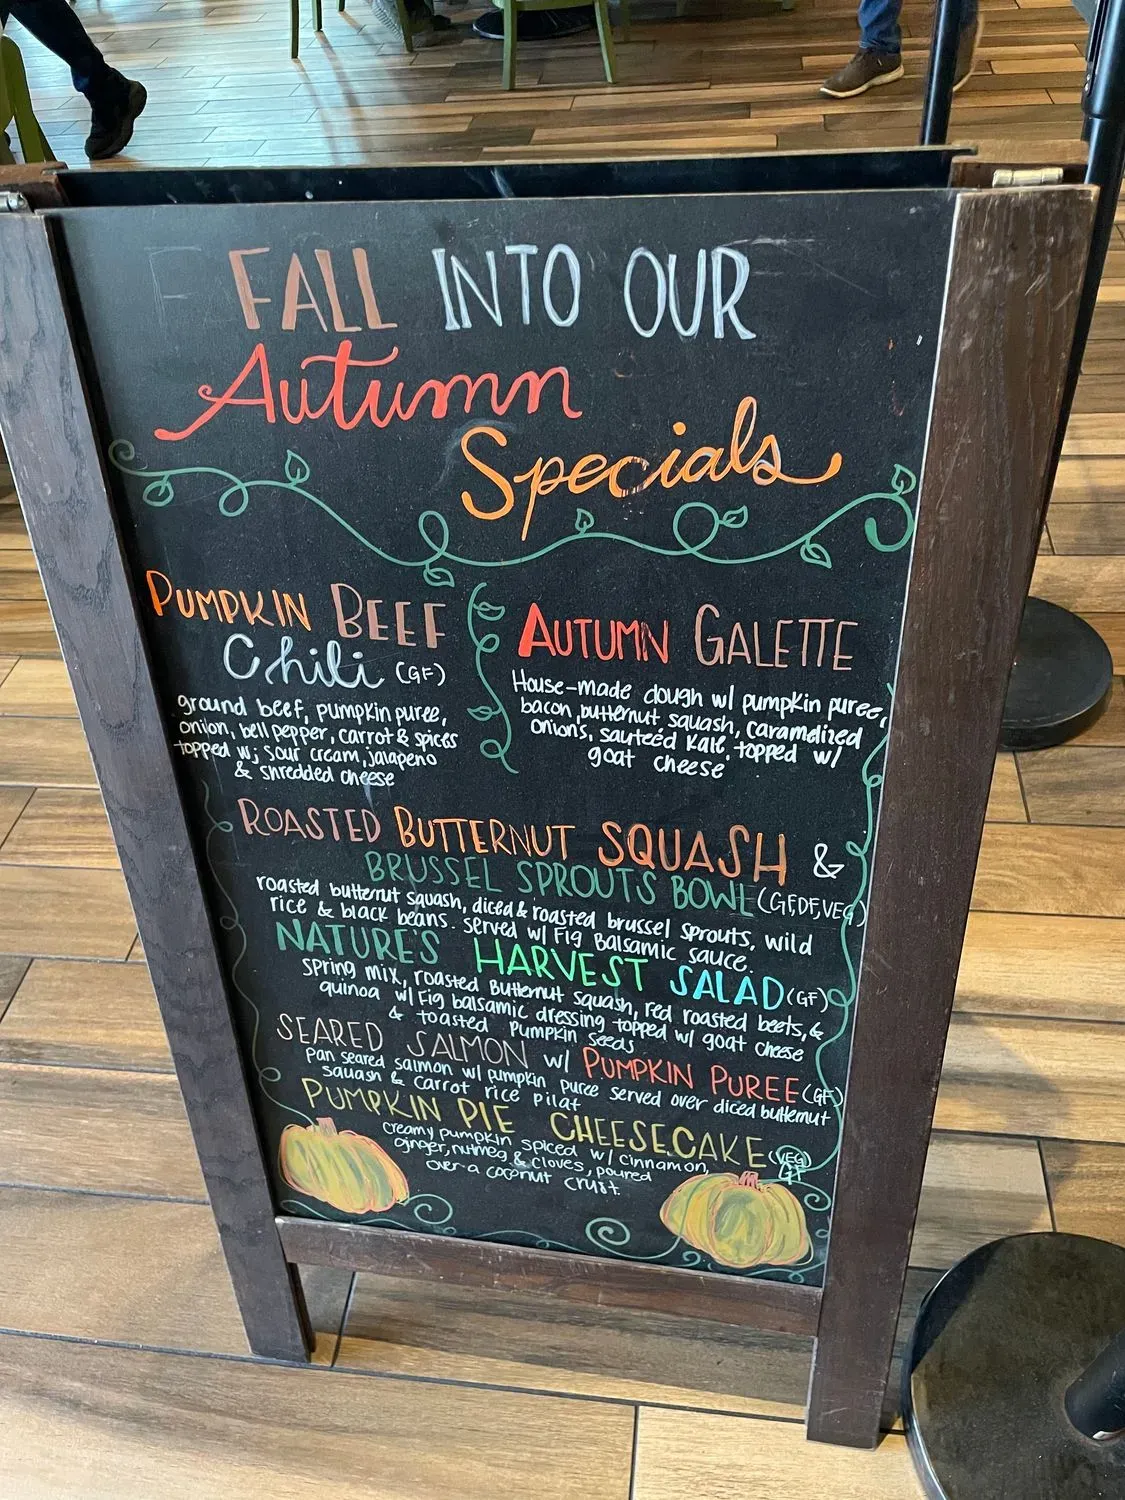 FALL INTO OUR
Autumn
Specials
PUMPKIN BEEF
Chili (GF)
ground beef, pumpkin puree,
onion, bell pepper, carrot & spices
topped w; sour cream, jalapeno
& shredded cheese
AUTUMN GALETTE
House-made dough w/ pumpkin puree,
bacon, butternut squash, caramelized
onions, sauteéd kale, topped w/
goat cheese
ROASTED BUTTERNUT SQUASH &
BRUSSEL SPROUTS BOWL (GF,DF,VEG)
roasted butternut squash, diced & roasted brussel sprouts, wild
rice & black beans. served w/ Fig Balsamic sauce.
NATURE'S HARVEST SALAD (GF)
spring mix, roasted Butternut squash, red roasted beets, &
quinoa w/ Fig balsamic dressing topped w/ goat cheese
& toasted pumpkin seeds
SEARED SALMON w/ PUMPKIN PUREE (GF)
pan seared salmon w/ pumpkin puree served over diced butternut
squash & carrot rice pilat
PUMPKIN PIE CHEESECAKE (VEG)
GF
creamy pumpkin spiced w/ cinnamon,
ginger, nutmeg & cloves, poured
over a coconut crust.